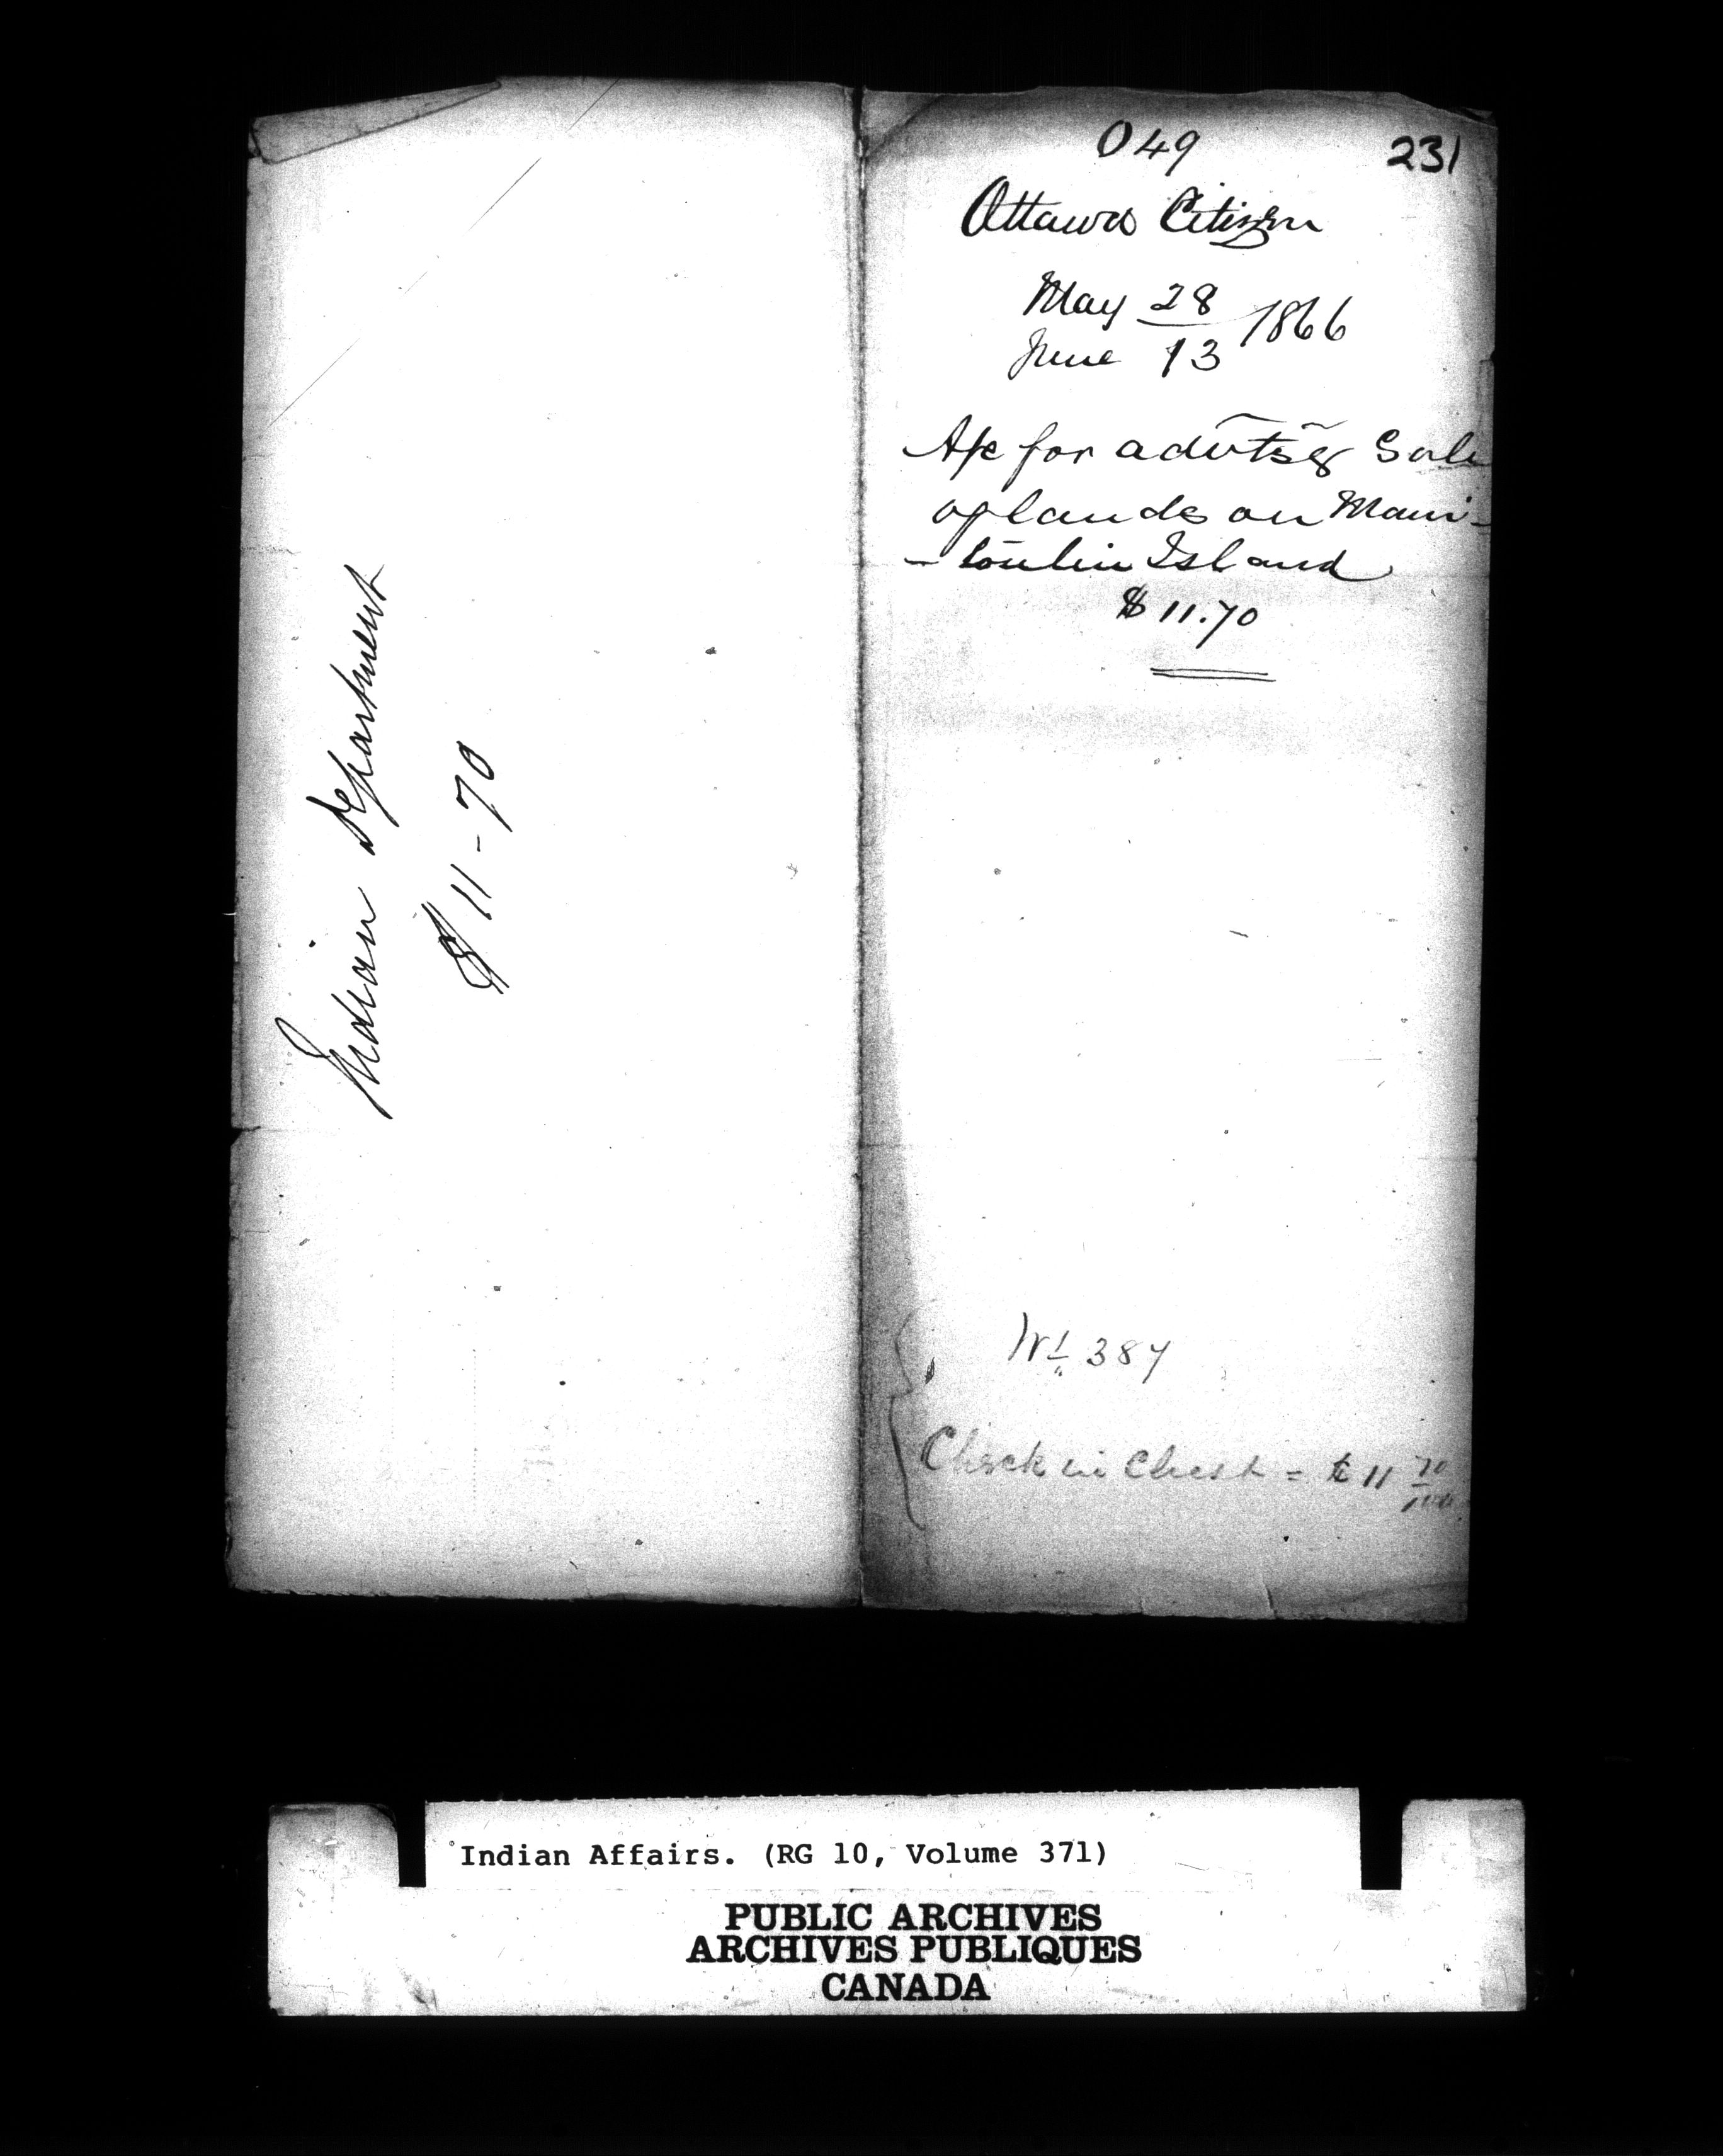 Indian Department
$ 11-70
O 49
231
Ottawa Citizen
May 28
June 13 1866
A/c for advtsg Sale
of lands on Mani-
-toulin Island
$ 11.70
Wt 387
Check in Chest = $ 11 70/100
Indian Affairs. (RG 10, Volume 371)
PUBLIC ARCHIVES
ARCHIVES PUBLIQUES
CANADA